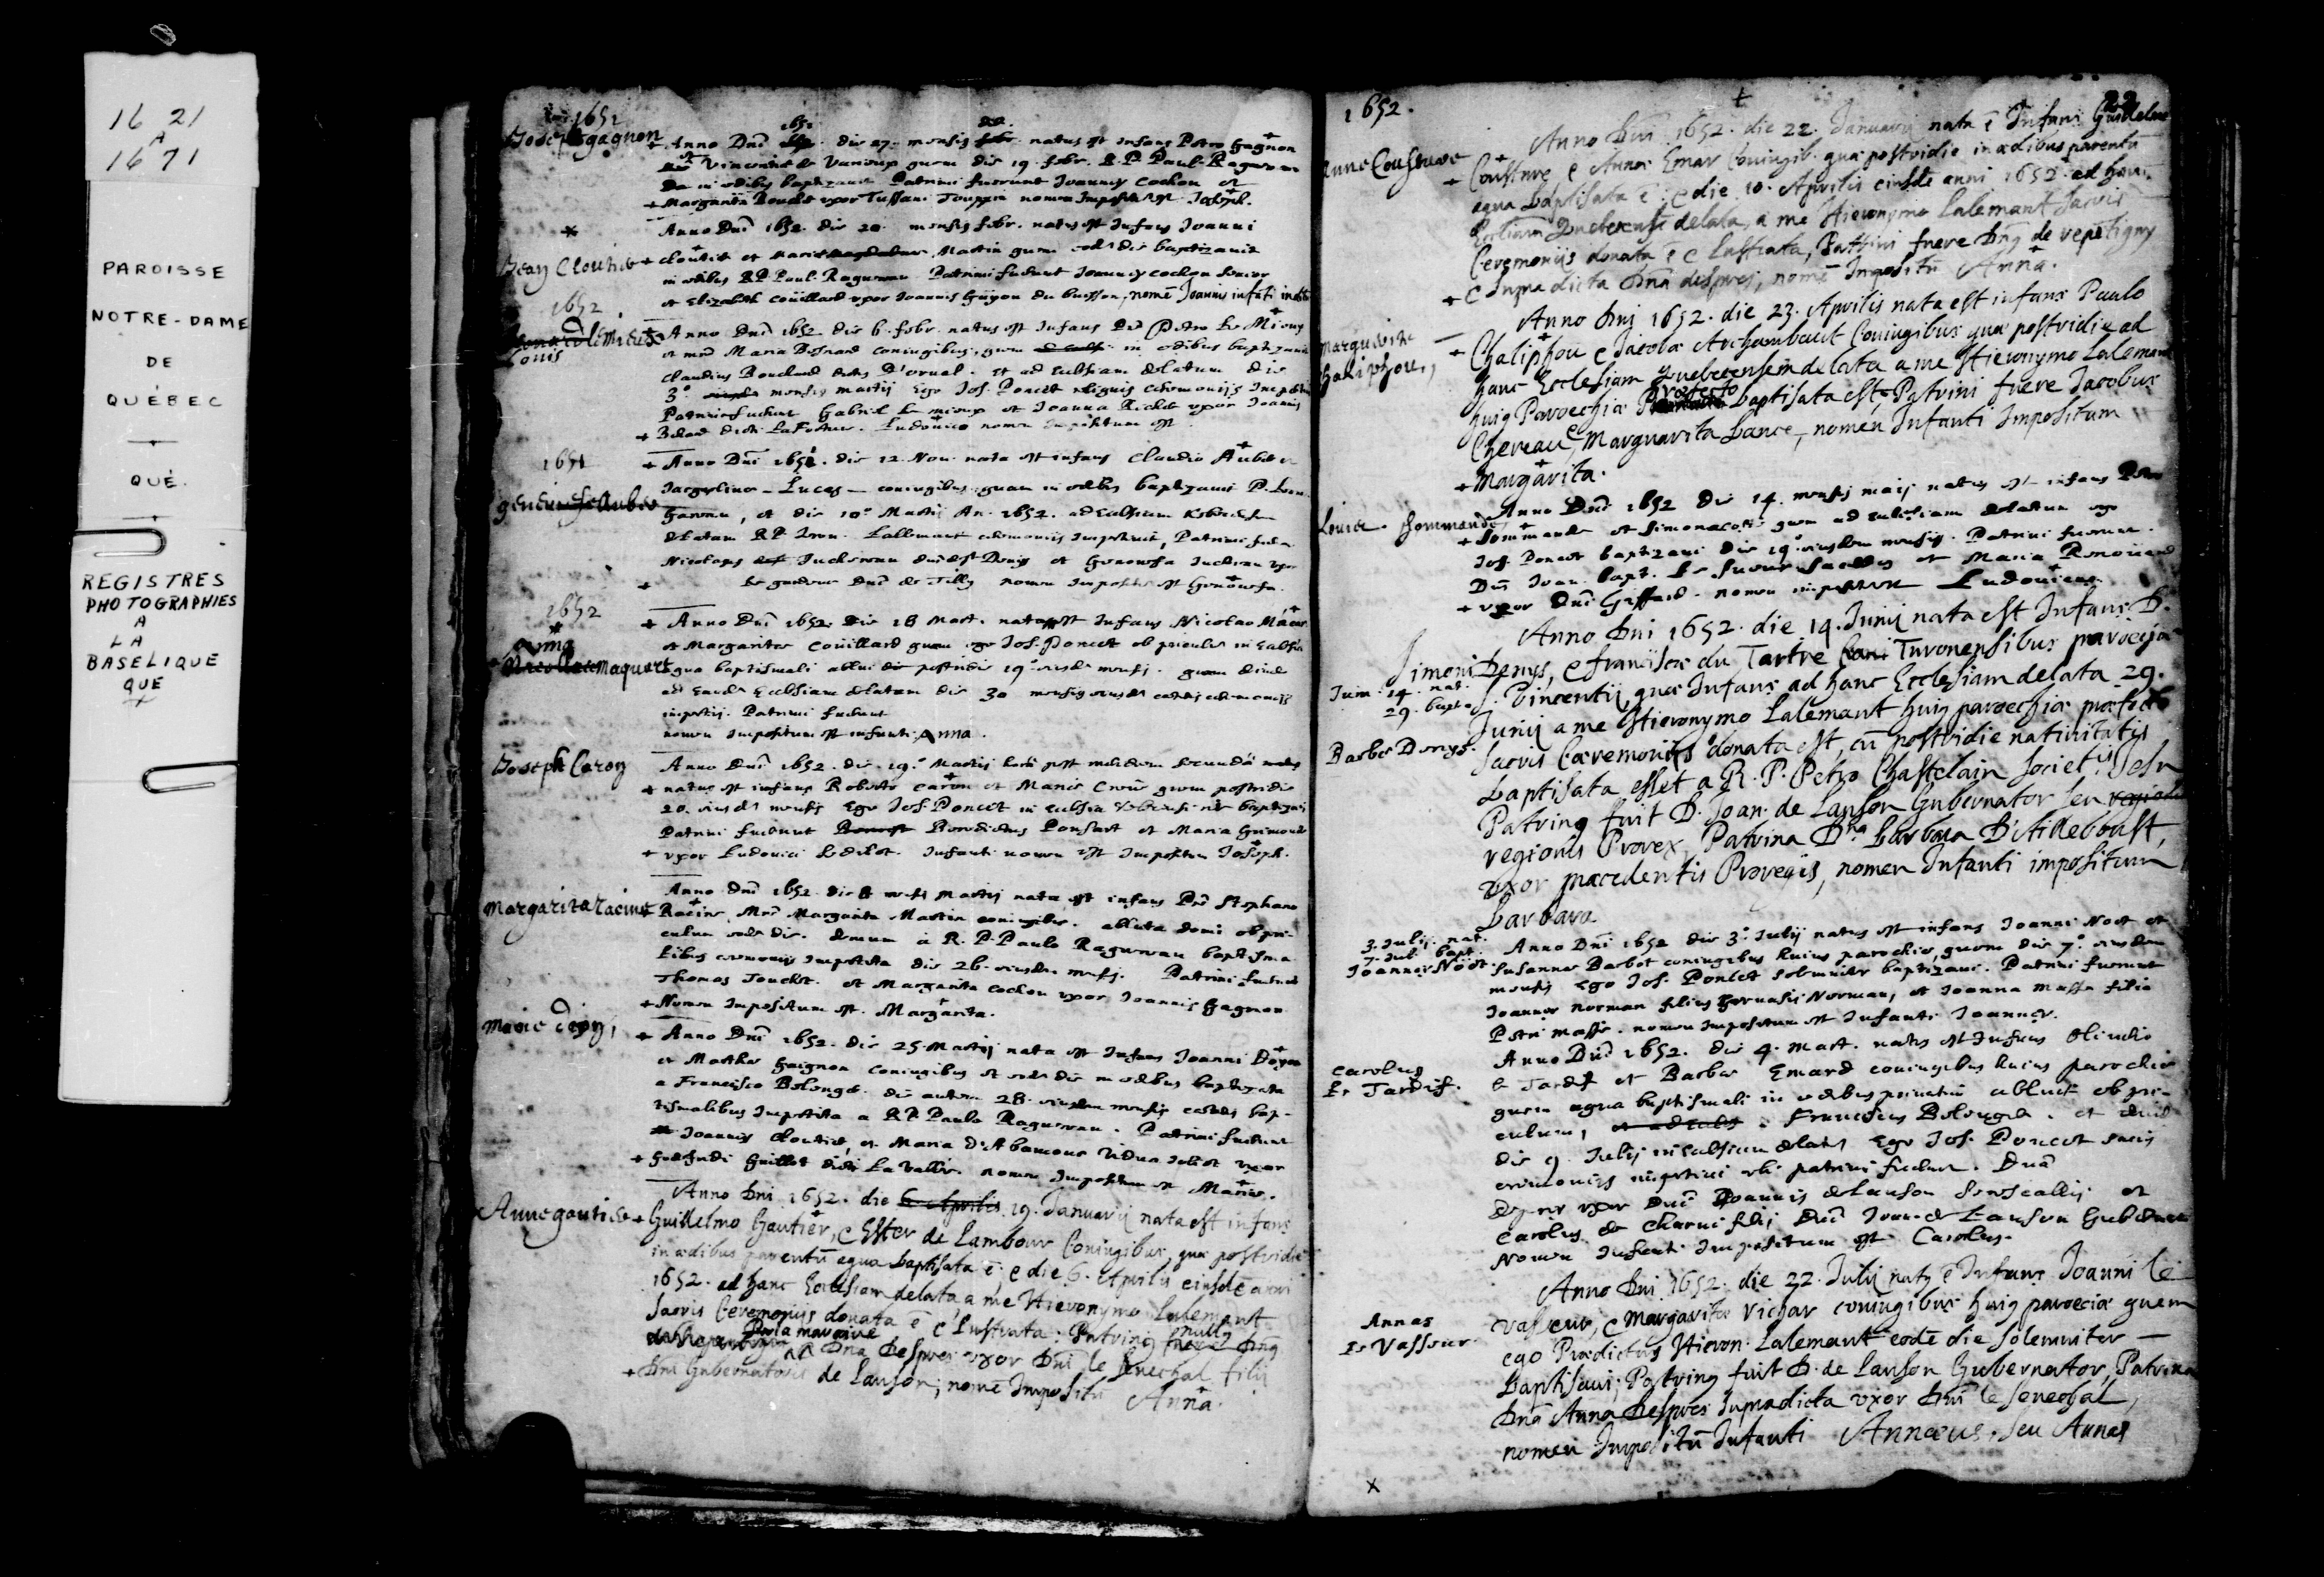 16 21
A
16 71
PAROISSE
NOTRE-DAME
DE
QUÉBEC
QUÉ.
REGISTRES
PHOTOGRAPHIES
A
LA
BASELIQUE
QUE
1651
Joseph gagnon
Anno Dnj die 27. mensis natus est infans Petro Gagnon
Vincentiæ de Varieur quem die 19. febr. R.P. Paul. Raguenau
in ædibus baptizauit Patrini fuerunt Joannes Cochon et
+ Margarita Boucher uxor Tussani Toupin nomen Impositum est Joseph.
Anno Dnj 1652. die 20. mensis febr. natus est infans Joanni
Jean Cloutier + Cloutier et Mariæ Martin quem eodem die baptizauit
in ædibus RP Paul. Raguenau Patrini fuerunt Joannes Cochon Senior
et Elizabeth Coüillard uxor Joannis Guyon du buisson, nomē Joannis infāti inditū
1652
Louis
Anno Dnj 1652 die 6. febr. natus est Infans Petro Le Mieux
et Maria Besnard coniugibus, quem in ædibus baptizauit
Claudius Bouchard dictus D'orual. et ad Ecclesiam delatum die
3° mensis martij Ego Jos. Poncet reliquis ceremonijs Impertiui
Patrini fuerunt Gabriel Le mieux et Joanna Richer uxor Joannis
+ dicti La Fortune. Ludouico nomen Impositum est
1651
+ Anno Dnj 1651. die 12. Nou. nata est infans Claudio Aubert
Jacquelinæ Lucas coniugibus quam in ædibus baptizauit P. Leon.
genevieve Aubert
Gareau, et die 10° Martij An. 1652. ad Ecclesiam
delatam RP Hier. Lallemant ceremonijs Impertiuit, Patrini fuerunt
Nicolaus Juchereau et Genouefa Juchereau uxor
+ Le gardeur Dnj de Tilly nomen Impositum est Genouefa.
1652
Anna
maquart
+ Anno Dnj 1652. die 18 Mart. nata est Infans Nicolao Macar
et Margaritæ Coüillard quam ego Jos. Poncet ob periculum in Ecclesia
aqua baptismali ablui postridie 19° eiusdem mensis. quam deinde
ad Eandem Ecclesiam delatam die 30 mensis eiusdem cæteris ceremonijs
impertij. Patrini fuerunt
nomen Impositum est infanti Anna.
Joseph Caron
Anno Dnj 1652. die 19° Martij hora post mediam secunda
+ natus est infans Roberto Caron et Mariæ Creuet quem postridie
20. eiusdem mensis Ego Jos Poncet in Ecclesia baptizaui
Patrini fuerunt Benedictus Ponsart et Maria Grimoult
+ uxor Ludouici Sedilot. Infanti nomen est Impositum Joseph.
margarita racine
Anno Dnj 1652 die mensis Martij nata est infans Dno Stephano
Racine, Margarita Martin coniugibus. abluta domi ob peri-
culum eodem die. demum à R.P. Paulo Raguenau baptisma-
libus ceremonijs Impertita die 26. eiusdem mensis. Patrini fuerunt
Thomas Touchet. et Margarita Cochon uxor Joannis Gagnon
+ Nomen Impositum est. Margarita.
marie doyon
+ Anno Dnj 1652. die 25. Martij nata est Infans Joanni Doyon
et Marthæ Gaignon coniugibus et eodem die in ædibus baptizata
a Francisco Belenger. die autem 28. eiusdem mensis cæteris bap-
tismalibus Impertita a RP Paulo Raguenau. Patrini fuerunt
Joannes Cloutier, et Maria D'Abancour vidua Joliet uxor
+ Godefridi Guillot dicti La Valle. nomen Impositum est Maria.
Anne gautier
Anno Dni 1652. die 6 Aprilis 19. Januarij nata est infans
+ Guillelmo Gautier, & Ester de Lambour Coniugibus, quæ postridie
in ædibus parentū aqua baptisata ē, & die 6. Aprilis eiusdē anni
1652. ad hanc Ecclesiam delata, a me Hieronymo Lalemant
sacris Ceremonijs donata ē & Lustrata: Patrinus nullus
Dna Despres uxor Dni le Senechal filij
+ Dni Gubernatoris de Lauson; nomē Impositū Anna.
1652.
22
Anno Dni 1652. die 22. Januarij nata ē Infans Guillelmo
Anne Cousture
+ Cousture & Annæ Emar Coniugib. quæ postridie in ædibus parentū
aqua baptisata ē: & die 10. Aprilis eiusdē anni 1652. ad hanc
Ecclesiam Quebecensē delata, a me Hieronymo Lalemant sacris
Ceremonijs donata ē & Lustrata, Patrini fuere Dnus de repetigny
+ & supra dicta Dna despres, nomē Impositū Anna.
Anno Dni 1652. die 23. Aprilis nata est infans Paulo
marguerite
Chaliphou
+ Chaliphou & Jacobæ Archambault Coniugibus quæ postridie ad
hanc Ecclesiam Quebecensem delata a me Hieronymo Lalemant
huius Parœchiæ Præfecto baptisata est, Patrini fuere Jacobus
Chereau & Marguarita Lance, nomen Infanti Impositum
+ Margarita.
Anno Dnj 1652 die 14. mensis maij natus est infans Petro
+ Sommande et Simonæ Coste quem ad Ecclesiam delatum ego
Jos. Poncet baptizaui die 19° eiusdem mensis. Patrini fuerunt
Dnus Joan. bapt. Le Sueur Sacerdos et Maria Renouard
+ uxor Dnj Giffard. nomen impositum Ludouicus.
Anno Dni 1652. die 14. Junij nata est Infans D.
Simoni Denys, & franciscæ du Tartre Turonensibus parœciæ
Juin. 14. nat.
29. bapt.
S. Vincentij, quæ Infans ad hanc Ecclesiam delata 29.
Junij a me Hieronymo Lalemant huius parœchiæ præfecto
Barbe Denys.
sacris Cæremonijs donata est, cū postridie natiuitatis
baptisata esset a R. P. Petro Chastelain societis Jesu
Patrinus fuit D. Joan. de Lauson Gubernator seu
regionis Prorex, Patrina Dna Barbara D'Ailleboust,
uxor præcedentis Proregis, nomen Infanti impositum
Barbara
3. Julij. nat.
7. Jul. bapt.
Joannes Nöot.
Anno Dnj 1652 die 3° Julij natus est infans Joanni Noot et
Susannæ Barbot coniugibus huius parochiæ, quem die 7° eiusdem
mensis Ego Jos. Poncet solemniter baptizaui. Patrini fuerunt
Joannes norman filius Geruasij Norman, et Joanna Masse filia
Petri masse. nomen Impositum est Infanti Joannes.
Anno Dnj 1652. die 4. Mart. natus est Infans Oliuerio
carolus
Le Tardif.
le Tardif et Barbæ Emard coniugibus huius parochiæ
quem aqua baptismali in ædibus priuatim abluit ob peri-
culum, Franciscus Belenger. et deinde
die 9 Julij in Ecclesiam delatum Ego Jos. Poncet sacris
ceremonijs impertiui ubi patrini fuerunt. Dna
Despres uxor Dnj Joannis de Lauson Senescallij et
Carolus de Charni filij Dnj Joan. de Lauson Gubernatoris
Nomen Infanti Impositum est Carolus.
Anno Dni 1652. die 22. Julij natus ē Infans Joanni le
Annas
Le Vasseur
Vasseur, & Margaritæ Richar coniugibus huius parœciæ quem
ego Prædictus Hieron. Lalemant eodē die solemniter
baptisaui; Patrinus fuit D. de Lauson Gubernator, Patrina
Dna Anna Despres supradicta uxor Dni le senechal,
nomen Impositū Infanti Annæus, seu Annas